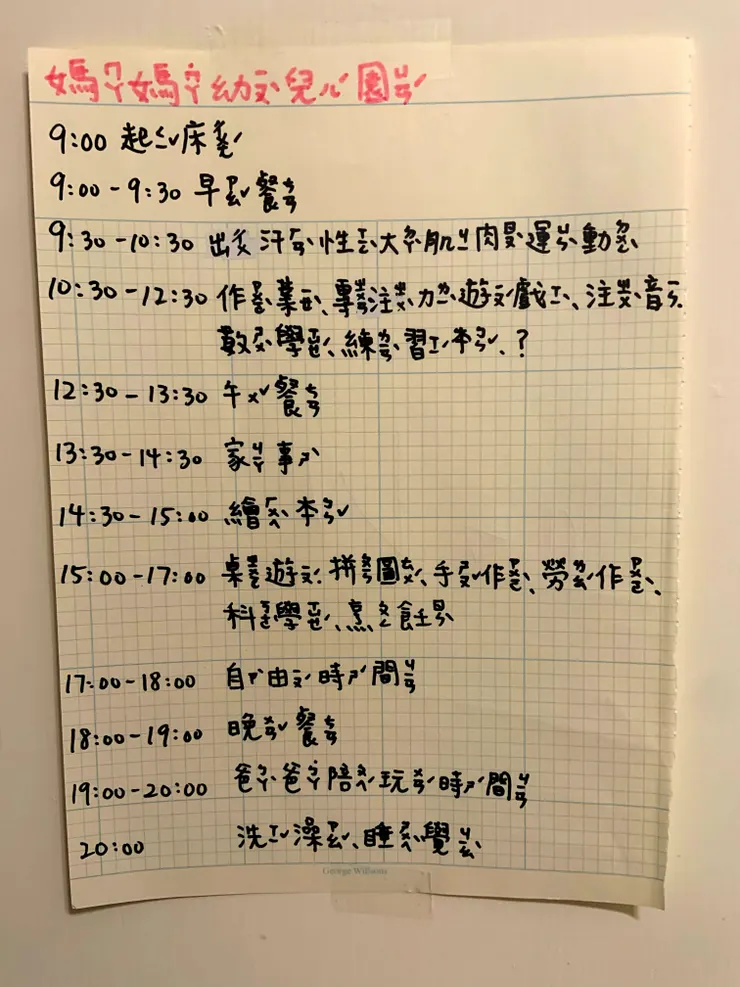 媽ㄇㄚ媽ㄇㄚ幼ㄧㄡˋ兒ㄦˊ園ㄩㄢˊ
9:00 起ㄑㄧˇ床ㄔㄨㄤˊ
9:00-9:30 早ㄗㄠˇ餐ㄘㄢ
9:30-10:30 出汗ㄏㄢˋ性ㄒㄧㄥˋ大ㄉㄚˋ肌ㄐㄧ肉ㄖㄡˋ運ㄩㄣˋ動ㄉㄨㄥˋ
10:30-12:30 作ㄗㄨㄛˋ業ㄧㄝˋ、專ㄓㄨㄢ注ㄓㄨˋ力ㄌㄧˋ遊ㄧㄡˊ戲ㄒㄧˋ、注ㄓㄨˋ音ㄧㄣ、
數ㄕㄨˋ學ㄒㄩㄝˊ、練ㄌㄧㄢˋ習ㄒㄧˊ本ㄅㄣˇ、?
12:30-13:30 午ㄨˇ餐ㄘㄢ
13:30-14:30 家ㄐㄧㄚ事ㄕˋ
14:30-15:00 繪ㄏㄨㄟˋ本ㄅㄣˇ
15:00-17:00 桌ㄓㄨㄛ遊ㄧㄡˊ、拼ㄆㄧㄣ圖ㄊㄨˊ、手ㄕㄡˇ作ㄗㄨㄛˋ、勞ㄌㄠˊ作ㄗㄨㄛˋ、
科ㄎㄜ學ㄒㄩㄝˊ、烹ㄆㄥ飪ㄖㄣˋ
17:00-18:00 自ㄗˋ由ㄧㄡˊ時ㄕˊ間ㄐㄧㄢ
18:00-19:00 晚ㄨㄢˇ餐ㄘㄢ
19:00-20:00 爸ㄅㄚˋ爸ㄅㄚ˙陪ㄆㄟˊ玩ㄨㄢˊ時ㄕˊ間ㄐㄧㄢ
20:00 洗ㄒㄧˇ澡ㄗㄠˇ、睡ㄕㄨㄟˋ覺ㄐㄧㄠˋ
George Willson